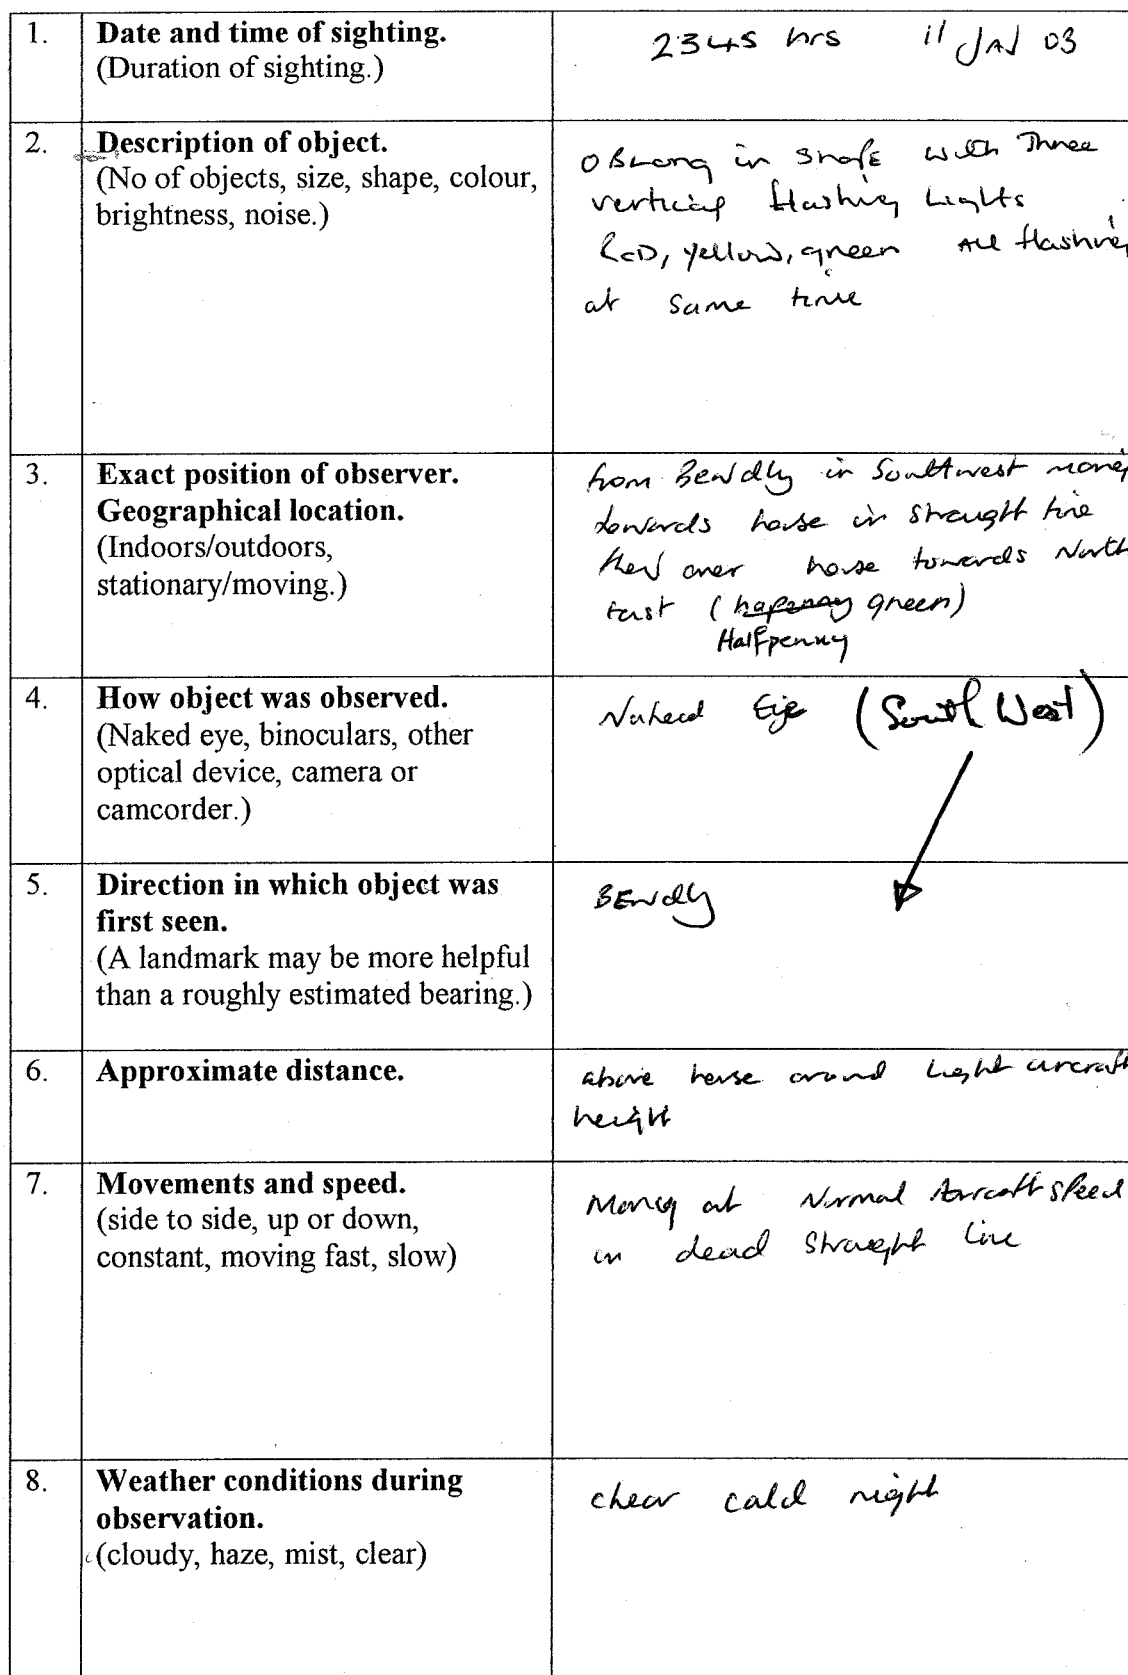 1. Date and time of sighting.
(Duration of sighting.)
2345 hrs 11 JAN 03
2. Description of object.
(No of objects, size, shape, colour,
brightness, noise.)
OBLong in shape with Three
vertical flashing Lights
ReD, yellow, green All flashing
at same time
3. Exact position of observer.
Geographical location.
(Indoors/outdoors,
stationary/moving.)
from Bewdly in Southwest moving
towards house in straught line
then over house towards North
East (green)
Halfpenny
4. How object was observed.
(Naked eye, binoculars, other
optical device, camera or
camcorder.)
Nakead Eye (South West)
5. Direction in which object was
first seen.
(A landmark may be more helpful
than a roughly estimated bearing.)
BEwdly
6. Approximate distance.
above house around Light aircraft
height
7. Movements and speed.
(side to side, up or down,
constant, moving fast, slow)
Moving at Normal Aircraft speed
in dead straight line
8. Weather conditions during
observation.
(cloudy, haze, mist, clear)
clear cold night